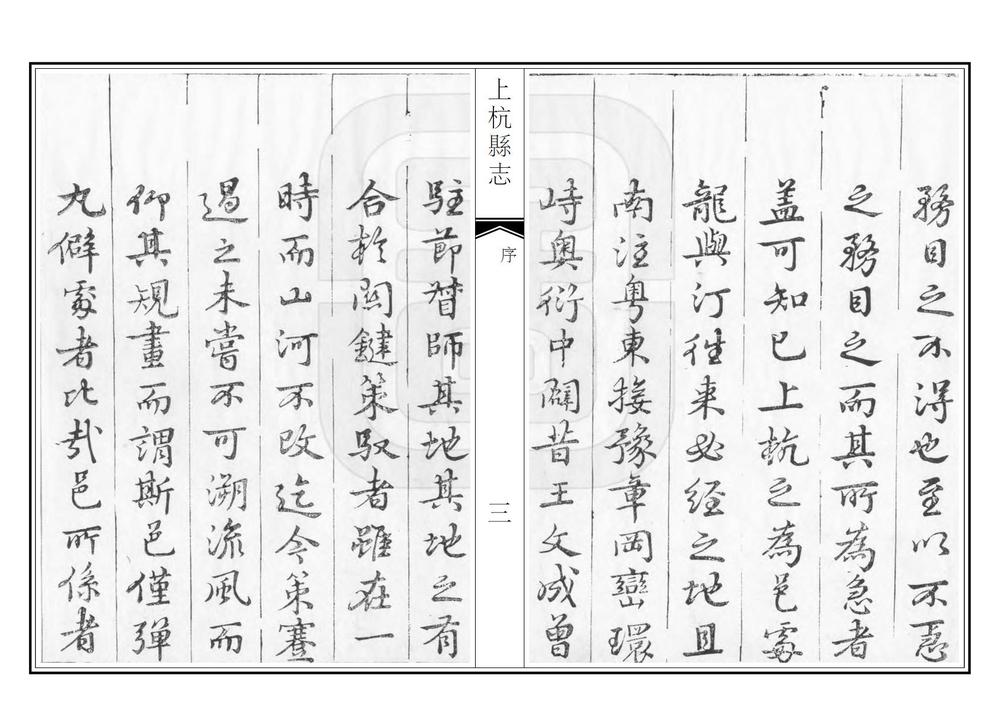 務目之不得也至以不惡
之務目之而其所為急者
蓋可知已上杭之為邑處
龍與汀徃来必經之地且
南注粤東接豫章岡巒環
峙奥衍中闢昔王文成曾
上杭縣志
序
三
駐節督師其地其地之有
合於関鍵策馭者雖在一
時而山河不改迄今策蹇
過之未嘗不可溯流風而
仰其規畫而謂斯邑僅彈
丸僻處者比哉邑所係者